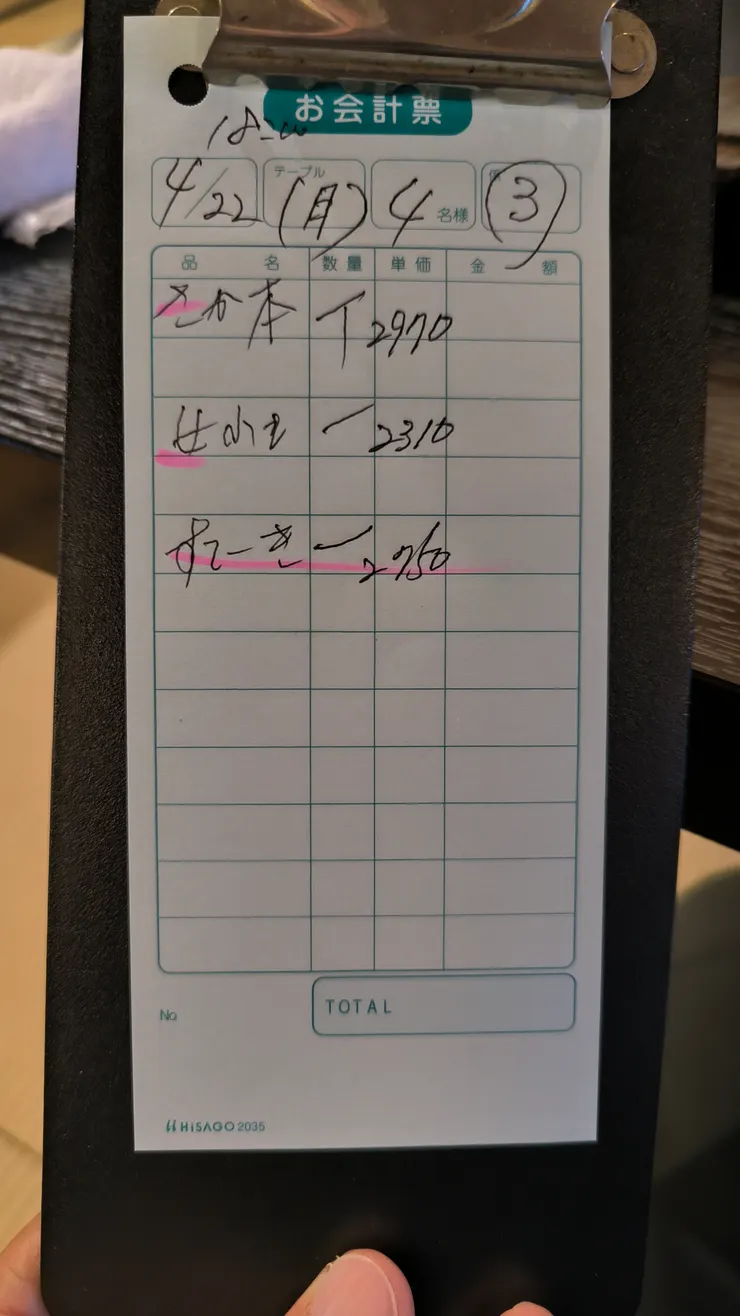 お会計票
18:00
4/22 テーブル (月) 4 名様 ③
品名 数量 単価 金額
さか本 丅 2970
一 2310
すてーき 一 2750
No
TOTAL
HiSAGO 2035